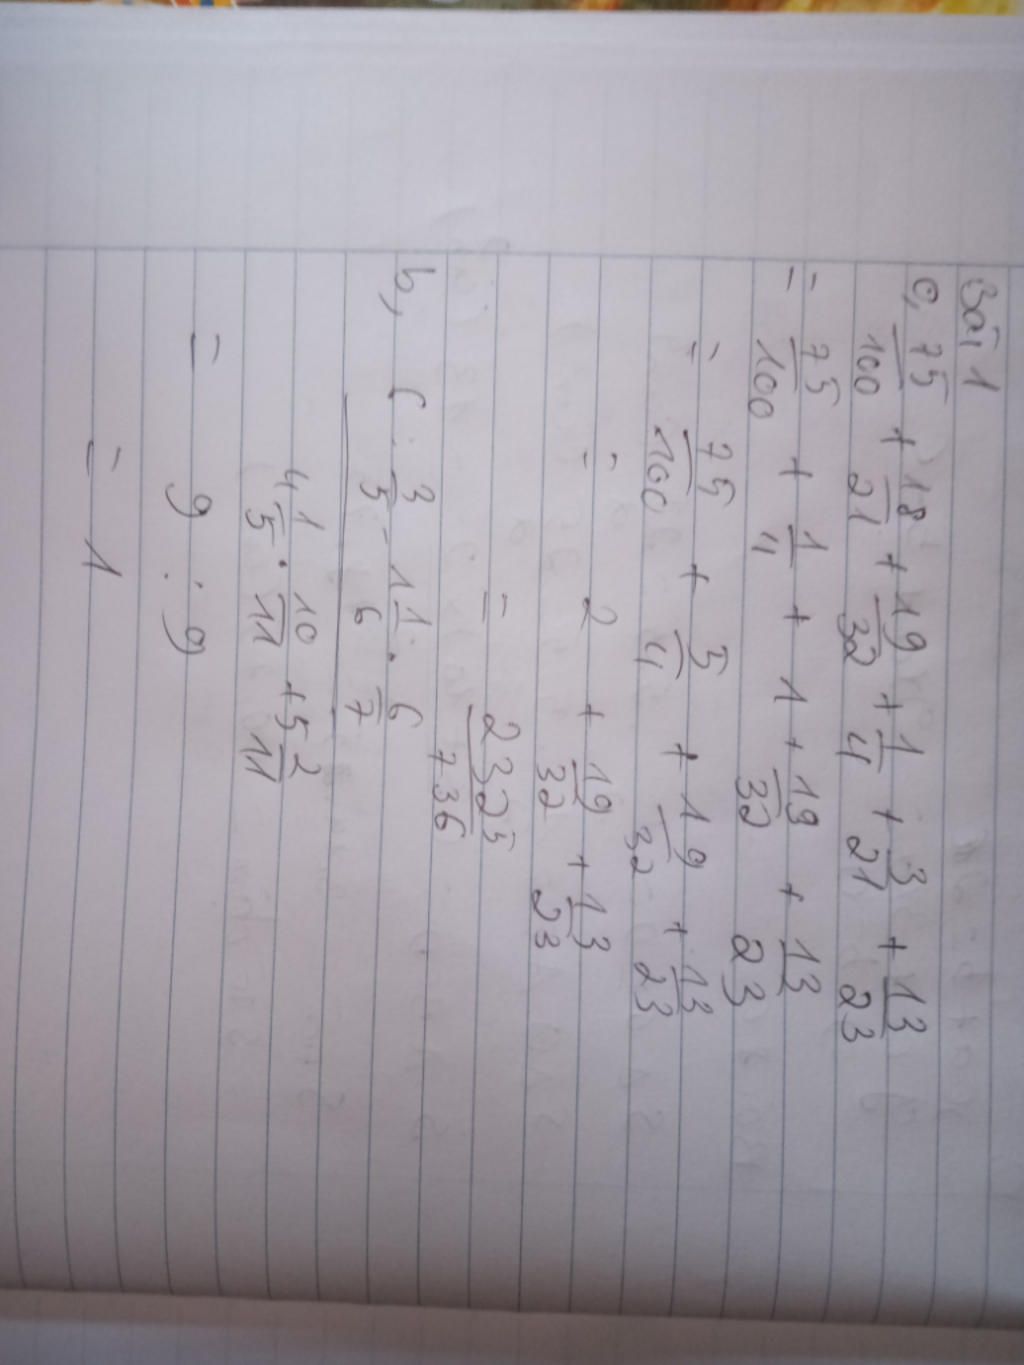 Bài 1
c, 75/100 + 18/21 + 19/32 + 1/4 + 3/21 + 13/23
= 75/100 + 1/4 + 1 + 19/32 + 13/23
= 75/100 + 5/4 + 19/32 + 13/23
= 2 + 19/32 + 13/23
= 2325/736
b, 6 : 3/5 - 1 1/6 . 6/7
4 1/5 . 10/11 + 5 2/11
= 9 : 9
= 1